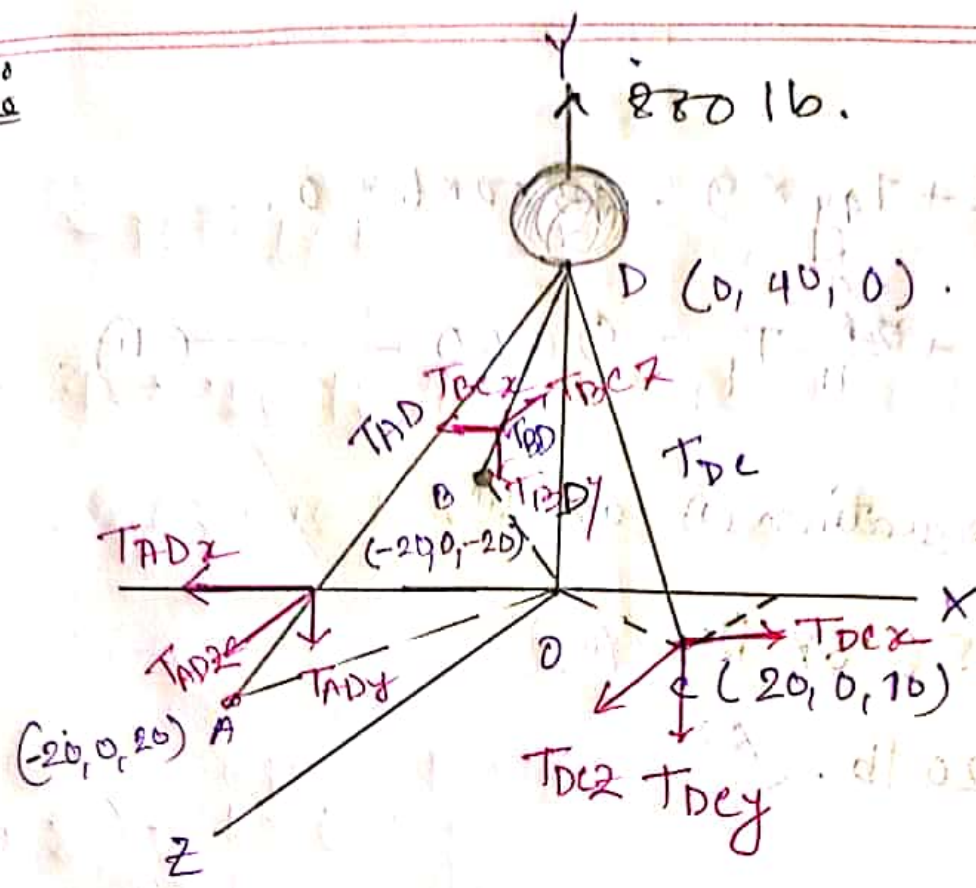 Y
880 lb.
D (0, 40, 0).
TBCx
TBCZ
TAD
TBD
TDC
B
TBDy
(-20,0,-20)
TADx
X
O
TDCx
TADZ
TADy
C (20, 0, 10)
(-20, 0, 20) A
TDCZ TDCy
Z